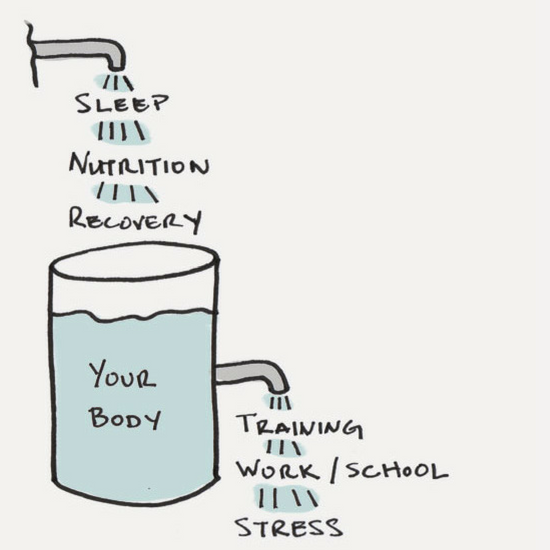 SLEEP
NUTRITION
RECOVERY
YOUR
BODY
TRAINING
WORK / SCHOOL
STRESS